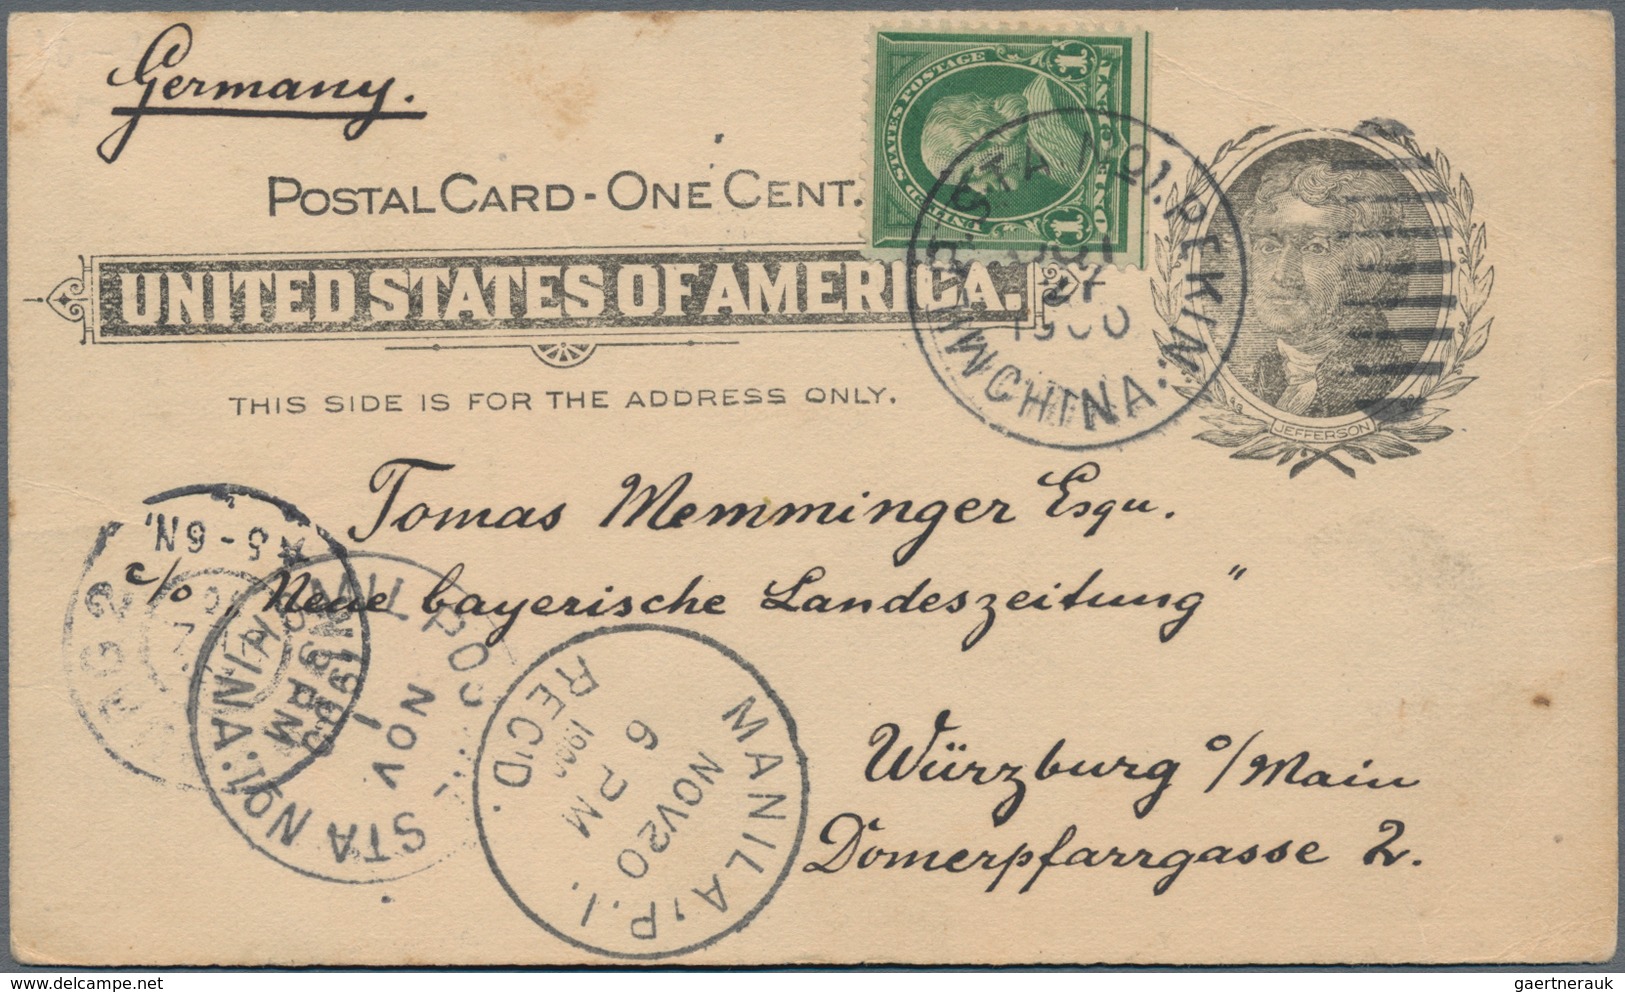 Germany.
POSTAL CARD - ONE CENT.
UNITED STATES OF AMERICA.
THIS SIDE IS FOR THE ADDRESS ONLY.
UNITED STATES POSTAGE
1 ONE CENT 1
STA NO1. PEKIN. CHINA.
1900
JEFFERSON
Tomas Memminger Esqu.
c/o „Neue bayerische Landeszeitung"
Würzburg o/Main
Domerpfarrgasse 2.
5-6N.
STA NO1.
NOV
1
PM
MANILA, P.I.
NOV 20
6 PM
1900
REC'D.
www.delcampe.net
gaertnerauk